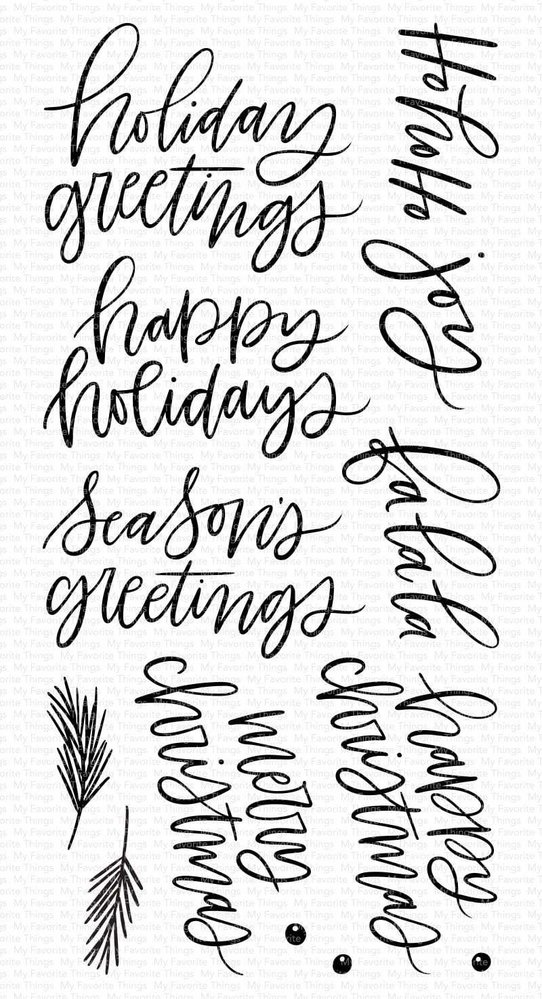 holiday
greetings
happy
holidays
season's
greetings
HoHoHo
joy
fa la la la
merry
christmas
happy
christmas
My Favorite Things